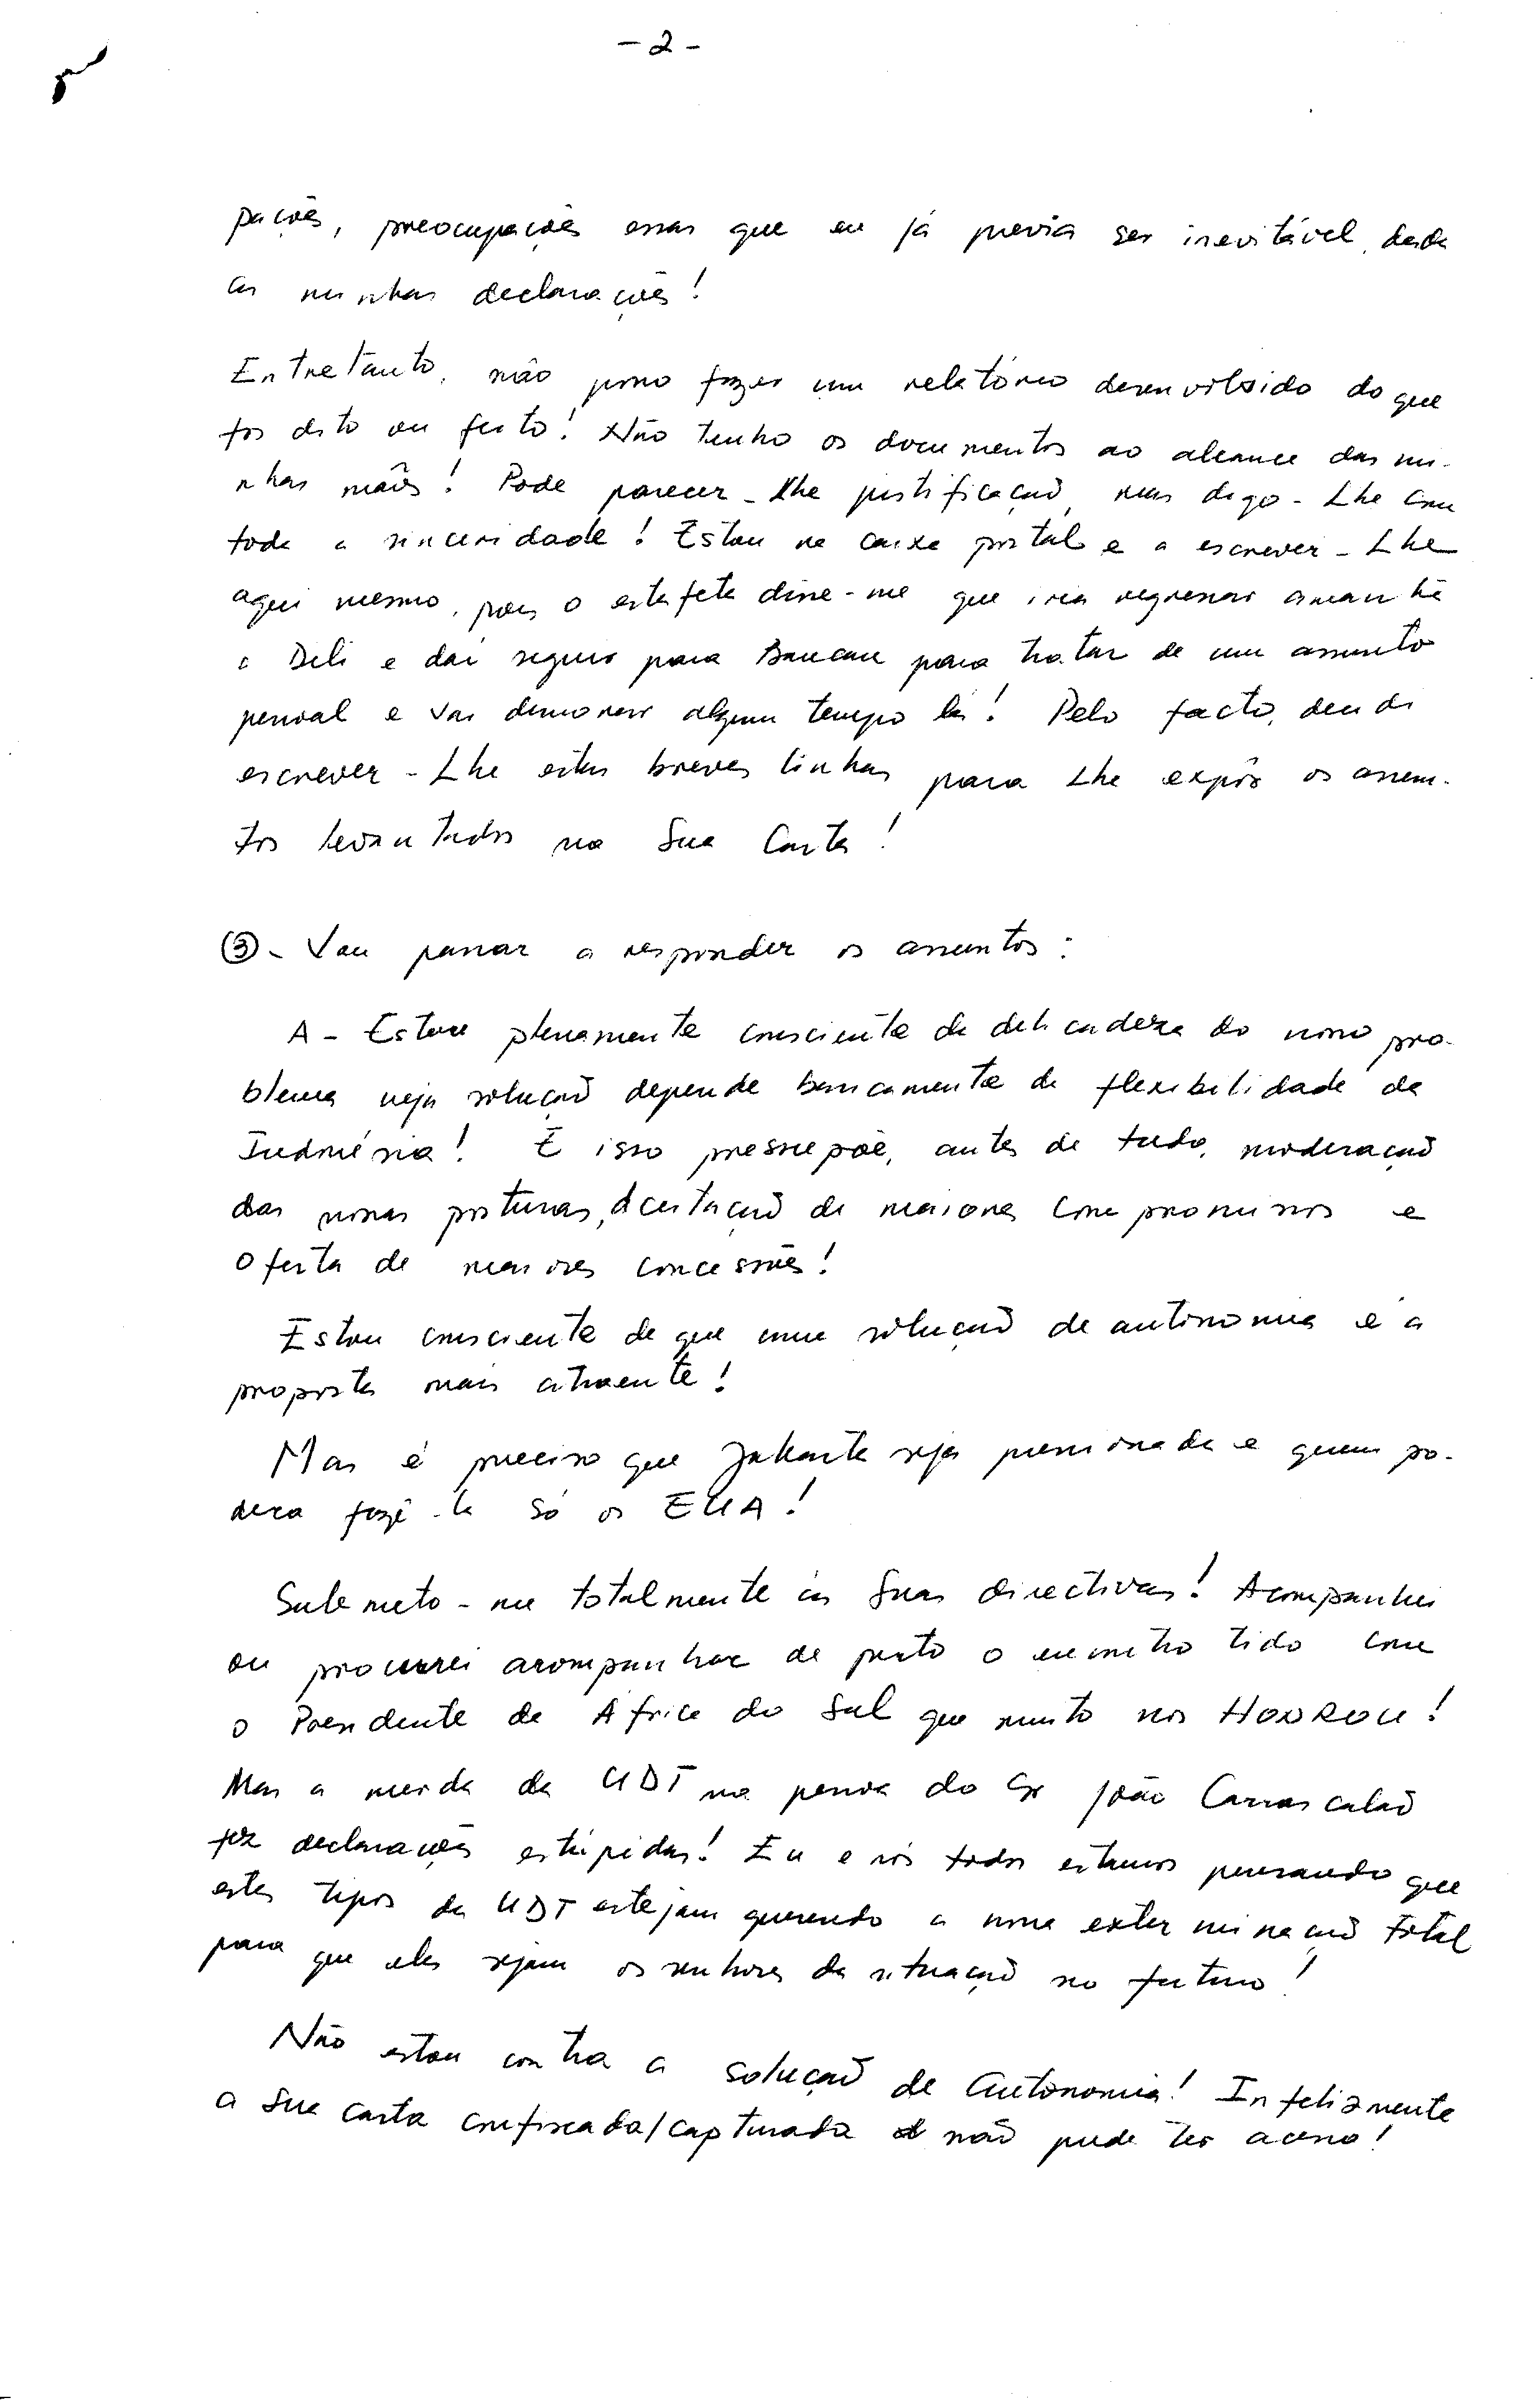 - 2 -
pações, preocupações essas que eu já previa ser inevitável, desde
as minhas declarações!
Entretanto, não posso fazer um relatório desenvolvido do que
foi dito ou feito! Não tenho os documentos ao alcance das mi-
nhas mãos! Pode parecer-Lhe justificação, mas digo-Lhe com
toda a sinceridade! Estou na caixa postal e a escrever-Lhe
aqui mesmo, pois o estafeta disse-me que iria regressar amanhã
a Dili e daí seguir para Baucau para tratar de um assunto
pessoal e vai demorar algum tempo lá! Pelo facto, decidi
escrever-Lhe estas breves linhas para Lhe expôr os assun-
tos levantados na Sua Carta!
③- Vou passar a responder os assuntos:
A - Estou plenamente consciente da delicadeza do nosso pro-
blema cuja solução depende basicamente da flexibilidade da
Indonésia! E isso pressupõe, antes de tudo, moderação
das nossas posturas, aceitação de maiores compromissos e
oferta de maiores concessões!
Estou consciente de que uma solução de autonomia é a
proposta mais atraente!
Mas é preciso que Jakarta seja pressionada e quem po-
dera fazê-la só os EUA!
Submeto-me totalmente às Suas directivas! Acompanhei
ou procurei acompanhar de perto o encontro tido com
o Presidente da Africa do Sul que muito nos HONROU!
Mas a merda da UDT na pessoa do Sr João Carrascalão
fez declarações estúpidas! Eu e nós todos estamos pensando que
estes tipos da UDT estejam querendo a nossa exterminação total
para que eles sejam os senhores da situação no futuro!
Não estou contra a solução de Autonomia! Infelizmente
a Sua carta confiscada/capturada não pude ter acesso!